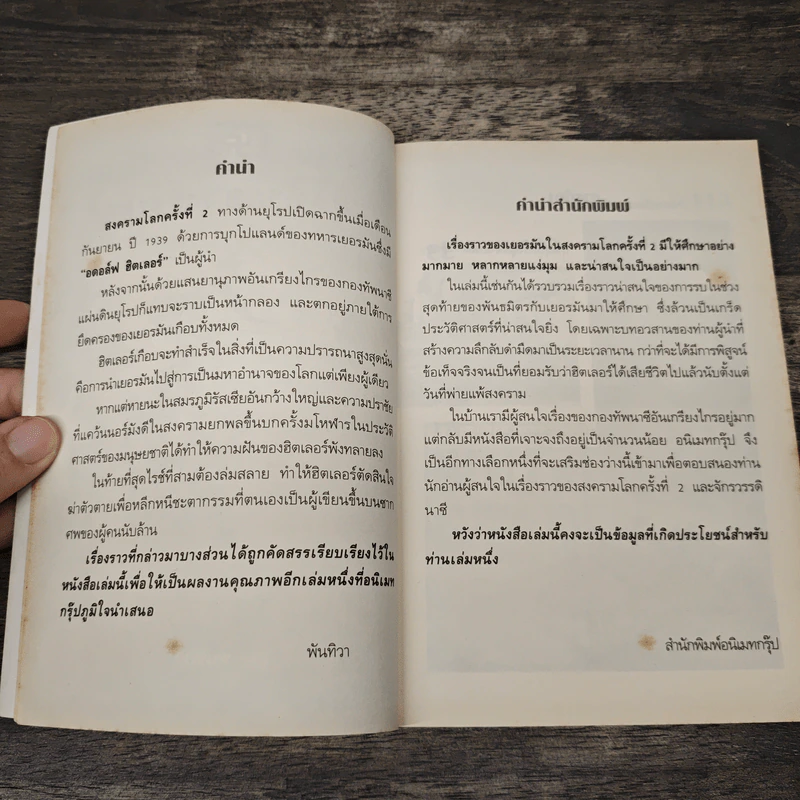 คำนำ
สงครามโลกครั้งที่ 2 ทางด้านยุโรปเปิดฉากขึ้นเมื่อเดือน
กันยายน ปี 1939 ด้วยการบุกโปแลนด์ของทหารเยอรมันซึ่งมี
"อดอล์ฟ ฮิตเลอร์" เป็นผู้นำ
หลังจากนั้นด้วยแสนยานุภาพอันเกรียงไกรของกองทัพนาซี
แผ่นดินยุโรปก็แทบจะราบเป็นหน้ากลอง และตกอยู่ภายใต้การ
ยึดครองของเยอรมันเกือบทั้งหมด
ฮิตเลอร์เกือบจะทำสำเร็จในสิ่งที่เป็นความปรารถนาสูงสุดนั่น
คือการนำเยอรมันไปสู่การเป็นมหาอำนาจของโลกแต่เพียงผู้เดียว
หากแต่หายนะในสมรภูมิรัสเซียอันกว้างใหญ่และความปราชัย
ที่แคว้นนอร์มังดีในสงครามยกพลขึ้นบกครั้งมโหฬารในประวัติ
ศาสตร์ของมนุษยชาติได้ทำให้ความฝันของฮิตเลอร์พังทลายลง
ในท้ายที่สุดไรซ์ที่สามต้องล่มสลาย ทำให้ฮิตเลอร์ตัดสินใจ
ฆ่าตัวตายเพื่อหลีกหนีชะตากรรมที่ตนเองเป็นผู้เขียนขึ้นบนซาก
ศพของผู้คนนับล้าน
เรื่องราวที่กล่าวมาบางส่วนได้ถูกคัดสรรเรียบเรียงไว้ใน
หนังสือเล่มนี้เพื่อให้เป็นผลงานคุณภาพอีกเล่มหนึ่งที่อนิเมท
กรุ๊ปภูมิใจนำเสนอ
พันทิวา
คำนำสำนักพิมพ์
เรื่องราวของเยอรมันในสงครามโลกครั้งที่ 2 มีให้ศึกษาอย่าง
มากมาย หลากหลายแง่มุม และน่าสนใจเป็นอย่างมาก
ในเล่มนี้เช่นกันได้รวบรวมเรื่องราวน่าสนใจของการรบในช่วง
สุดท้ายของพันธมิตรกับเยอรมันมาให้ศึกษา ซึ่งล้วนเป็นเกร็ด
ประวัติศาสตร์ที่น่าสนใจยิ่ง โดยเฉพาะบทอวสานของท่านผู้นำที่
สร้างความลึกลับดำมืดมาเป็นระยะเวลานาน กว่าที่จะได้มีการพิสูจน์
ข้อเท็จจริงจนเป็นที่ยอมรับว่าฮิตเลอร์ได้เสียชีวิตไปแล้วนับตั้งแต่
วันที่พ่ายแพ้สงคราม
ในบ้านเรามีผู้สนใจเรื่องของกองทัพนาซีอันเกรียงไกรอยู่มาก
แต่กลับมีหนังสือที่เจาะจงถึงอยู่เป็นจำนวนน้อย อนิเมทกรุ๊ป จึง
เป็นอีกทางเลือกหนึ่งที่จะเสริมช่องว่างนี้เข้ามาเพื่อตอบสนองท่าน
นักอ่านผู้สนใจในเรื่องราวของสงครามโลกครั้งที่ 2 และจักรวรรดิ
นาซี
หวังว่าหนังสือเล่มนี้คงจะเป็นข้อมูลที่เกิดประโยชน์สำหรับ
ท่านเล่มหนึ่ง
สำนักพิมพ์อนิเมทกรุ๊ป